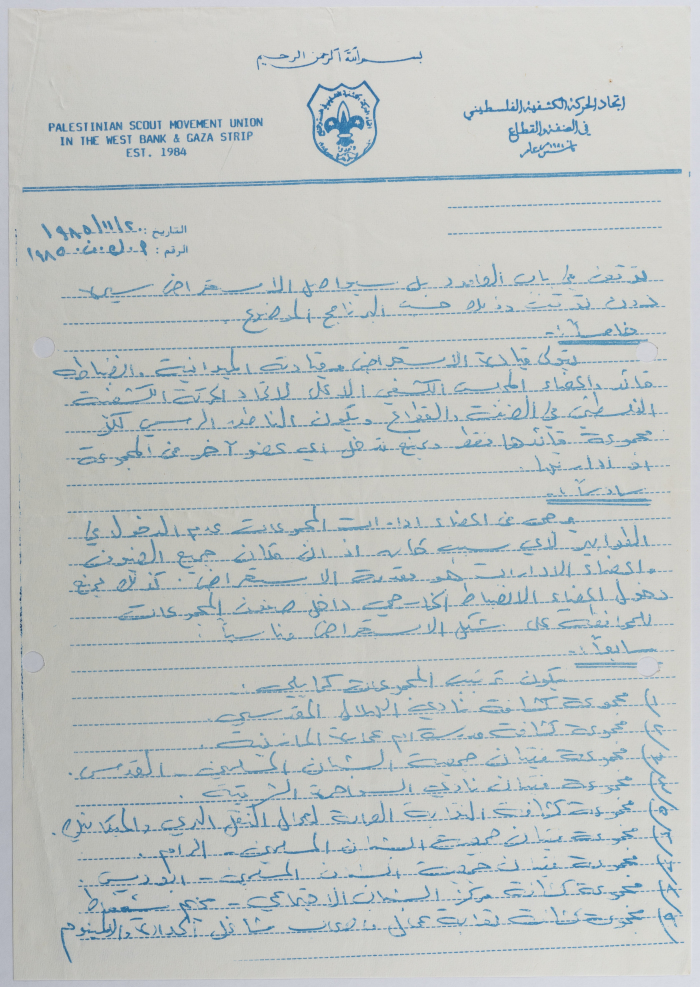 بسم الله الرحمن الرحيم
PALESTINIAN SCOUT MOVEMENT UNION
IN THE WEST BANK & GAZA STRIP
EST. 1984
اتحاد الحركة الكشفية الفلسطيني
في الضفة والقطاع
تأسس عام ١٩٨٤
التاريخ: ١٩٨٥/١١/٢٠
الرقم: ١٩٨٥
توقف في باب العامود بل سيواصل الاستعراض سيره
بدون توقف وذلك حسب البرنامج الموضوع.
خامساً:-
يتولى قيادة الاستعراض وقيادته الميدانية وانضباطه
قائد وأعضاء المجلس الكشفي الأعلى لاتحاد الحركة الكشفية
الفلسطيني في الضفة والقطاع ويكون الناطق الرسمي لكل
مجموعة قائدها فقط ويمنع تدخل أي عضو آخر من المجموعة
أو إدارتها.
سادساً:-
يرجى من أعضاء إدارات المجموعات عدم الدخول في
الطوابير لأي سبب كان إذ أن مكان جميع الضيوف
وأعضاء الإدارات هو مقدمة الاستعراض. كذلك يمنع
دخول أعضاء الانضباط الخارجي داخل صفوف المجموعات
للمحافظة على شكل الاستعراض مناسباً.
سابعاً:-
يكون ترتيب المجموعات كما يلي:
١) مجموعة كشافة نادي الهلال المقدسي.
٢) مجموعة كشافة مدرسة
٣) مجموعة فتيان جمعية الشبان المسلمين - القدس.
٤) مجموعة فتيان نادي السواحرة الشرقية.
٥) مجموعة كشافة النقابة العامة لعمال النقل البري والميكانيك.
٦) مجموعة فتيان جمعية الشبان المسلمين - الرام.
٧) مجموعة فتيان جمعية الشبان المسلمين - ابوديس.
٨) مجموعة كشافة مركز الشباب الاجتماعي - مخيم شعفاط
٩) مجموعة كشافة نقابة عمال مشاغل الحدادة والألمنيوم